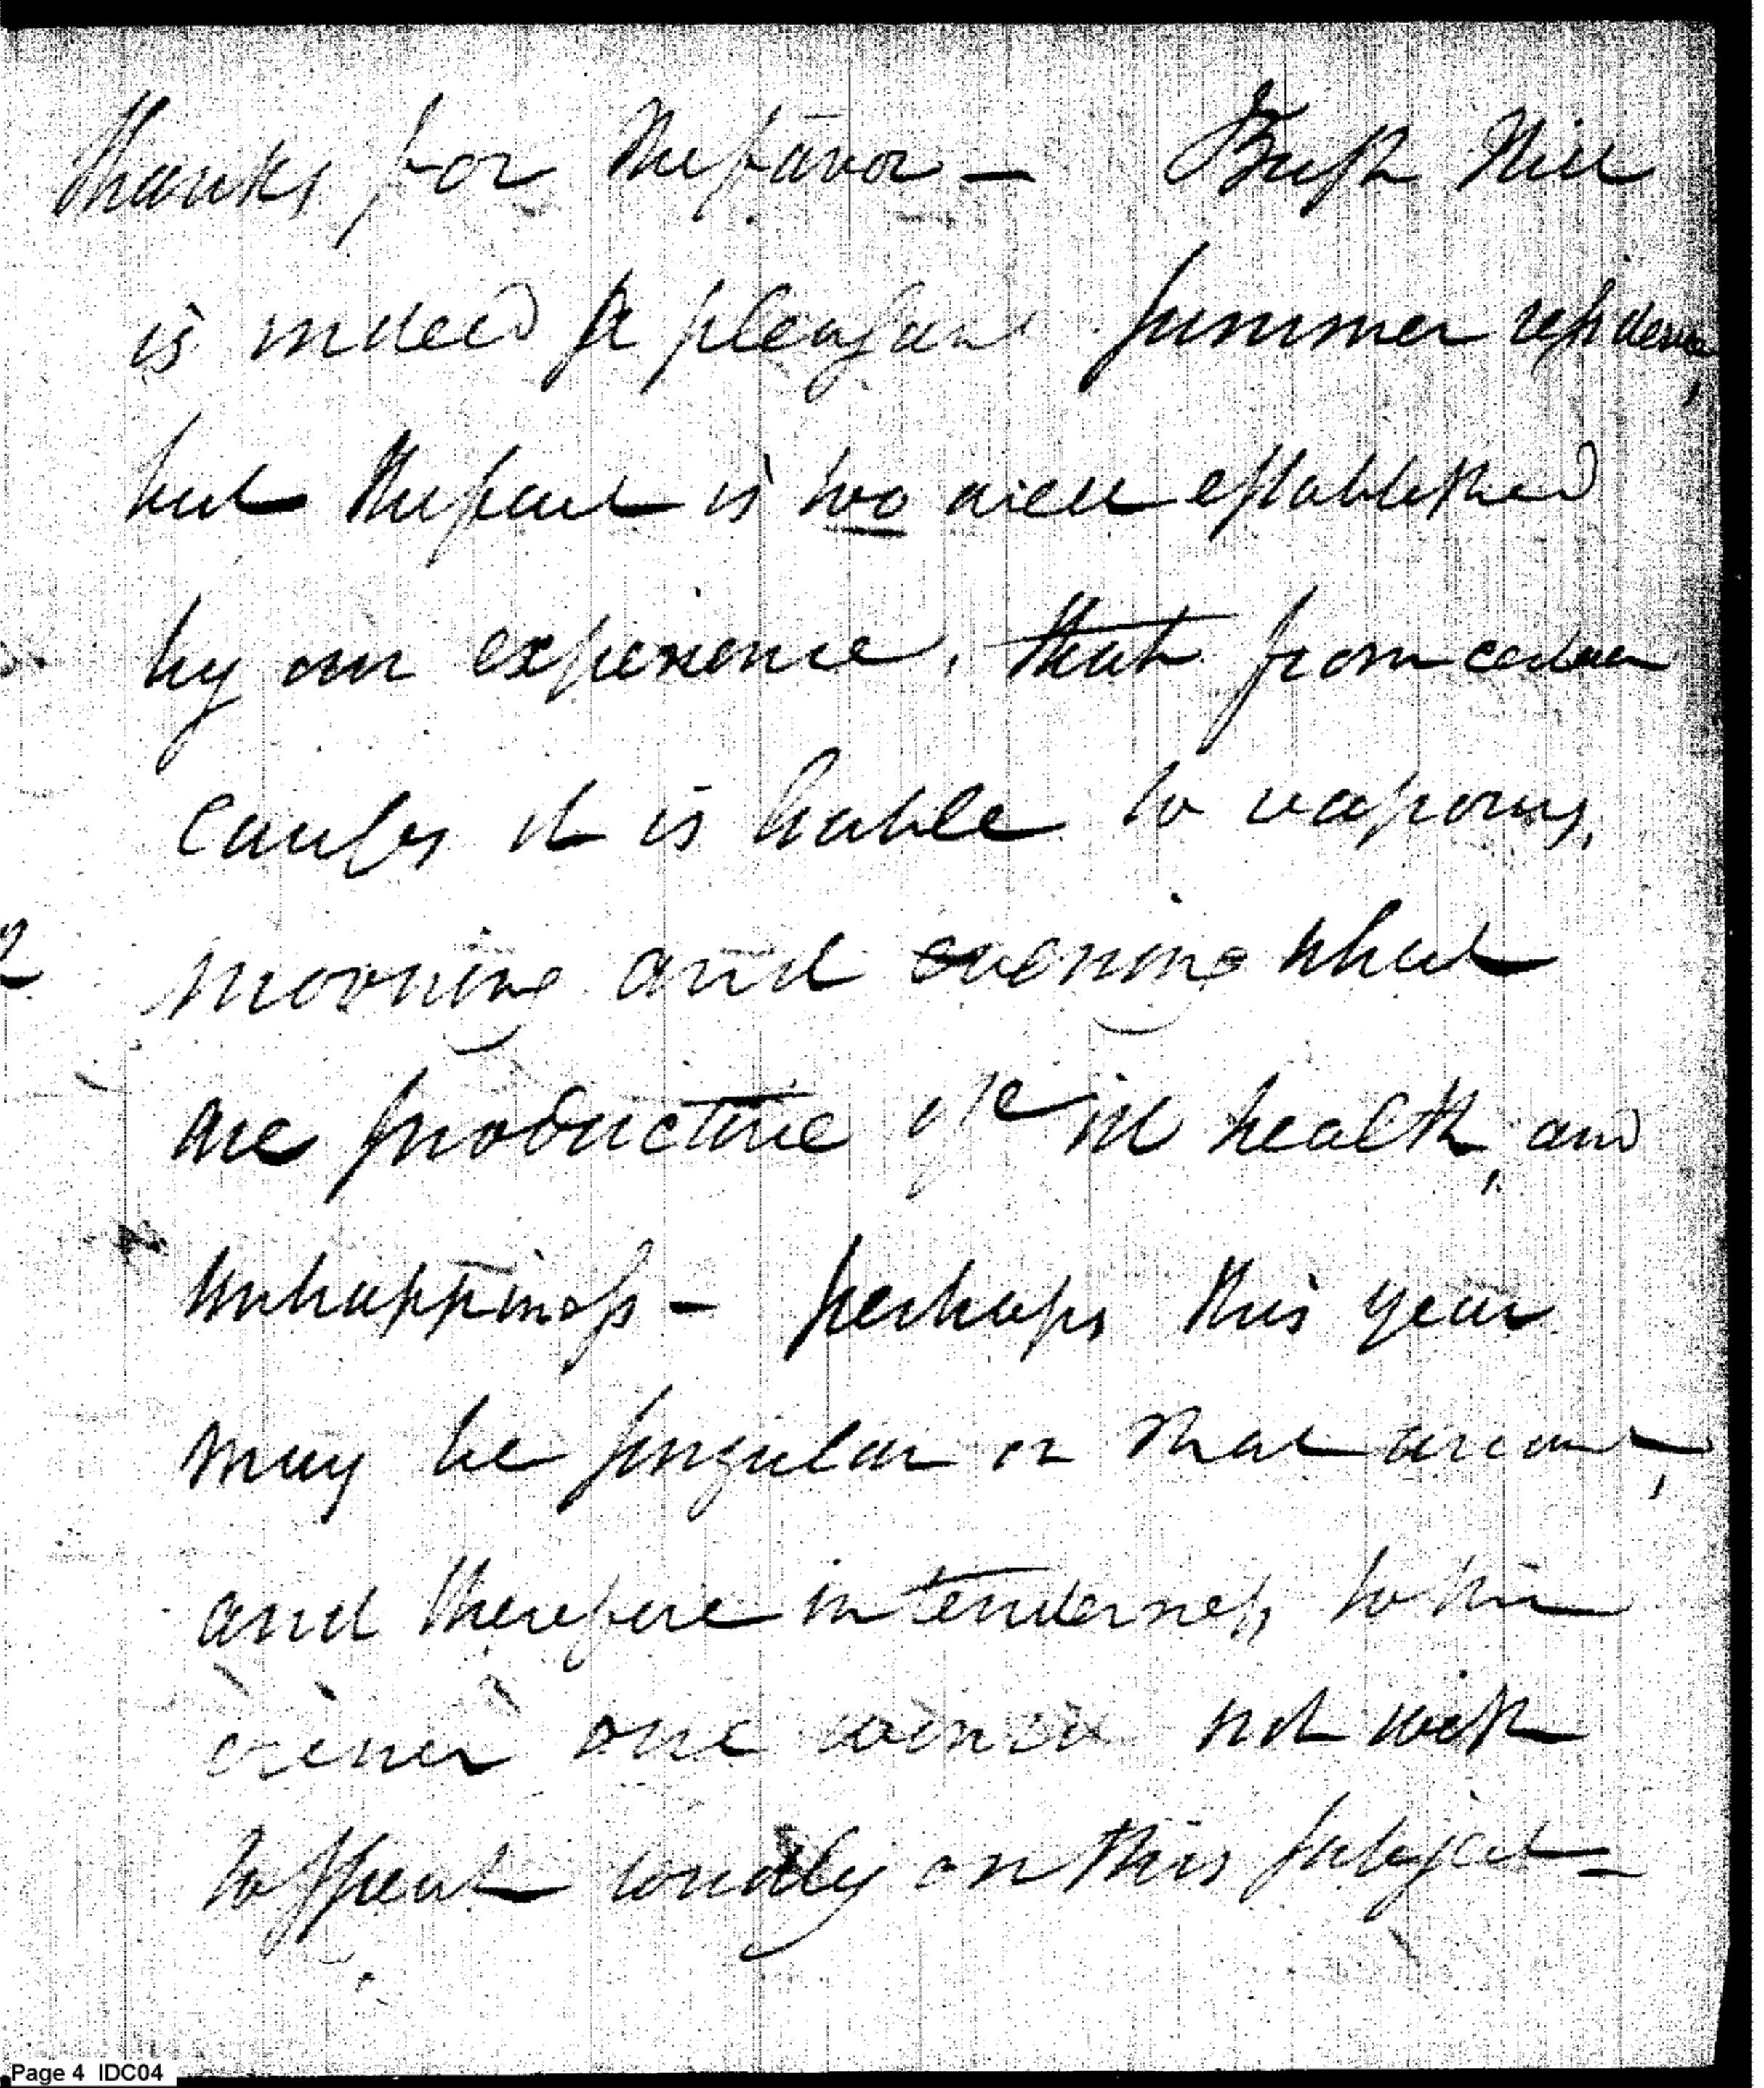 thanks for the favor — Bush Hill
is indeed a pleasant summer residence,
but the fact is too well established
by our experience, that from certain
causes it is liable to vapours,
morning and evening that
are productive of ill health, and
unhappiness — perhaps this year
may be singular on that account,
and therefore in tenderness to the
owner one would not wish
to speak loudly on this subject —
Page 4 IDC04